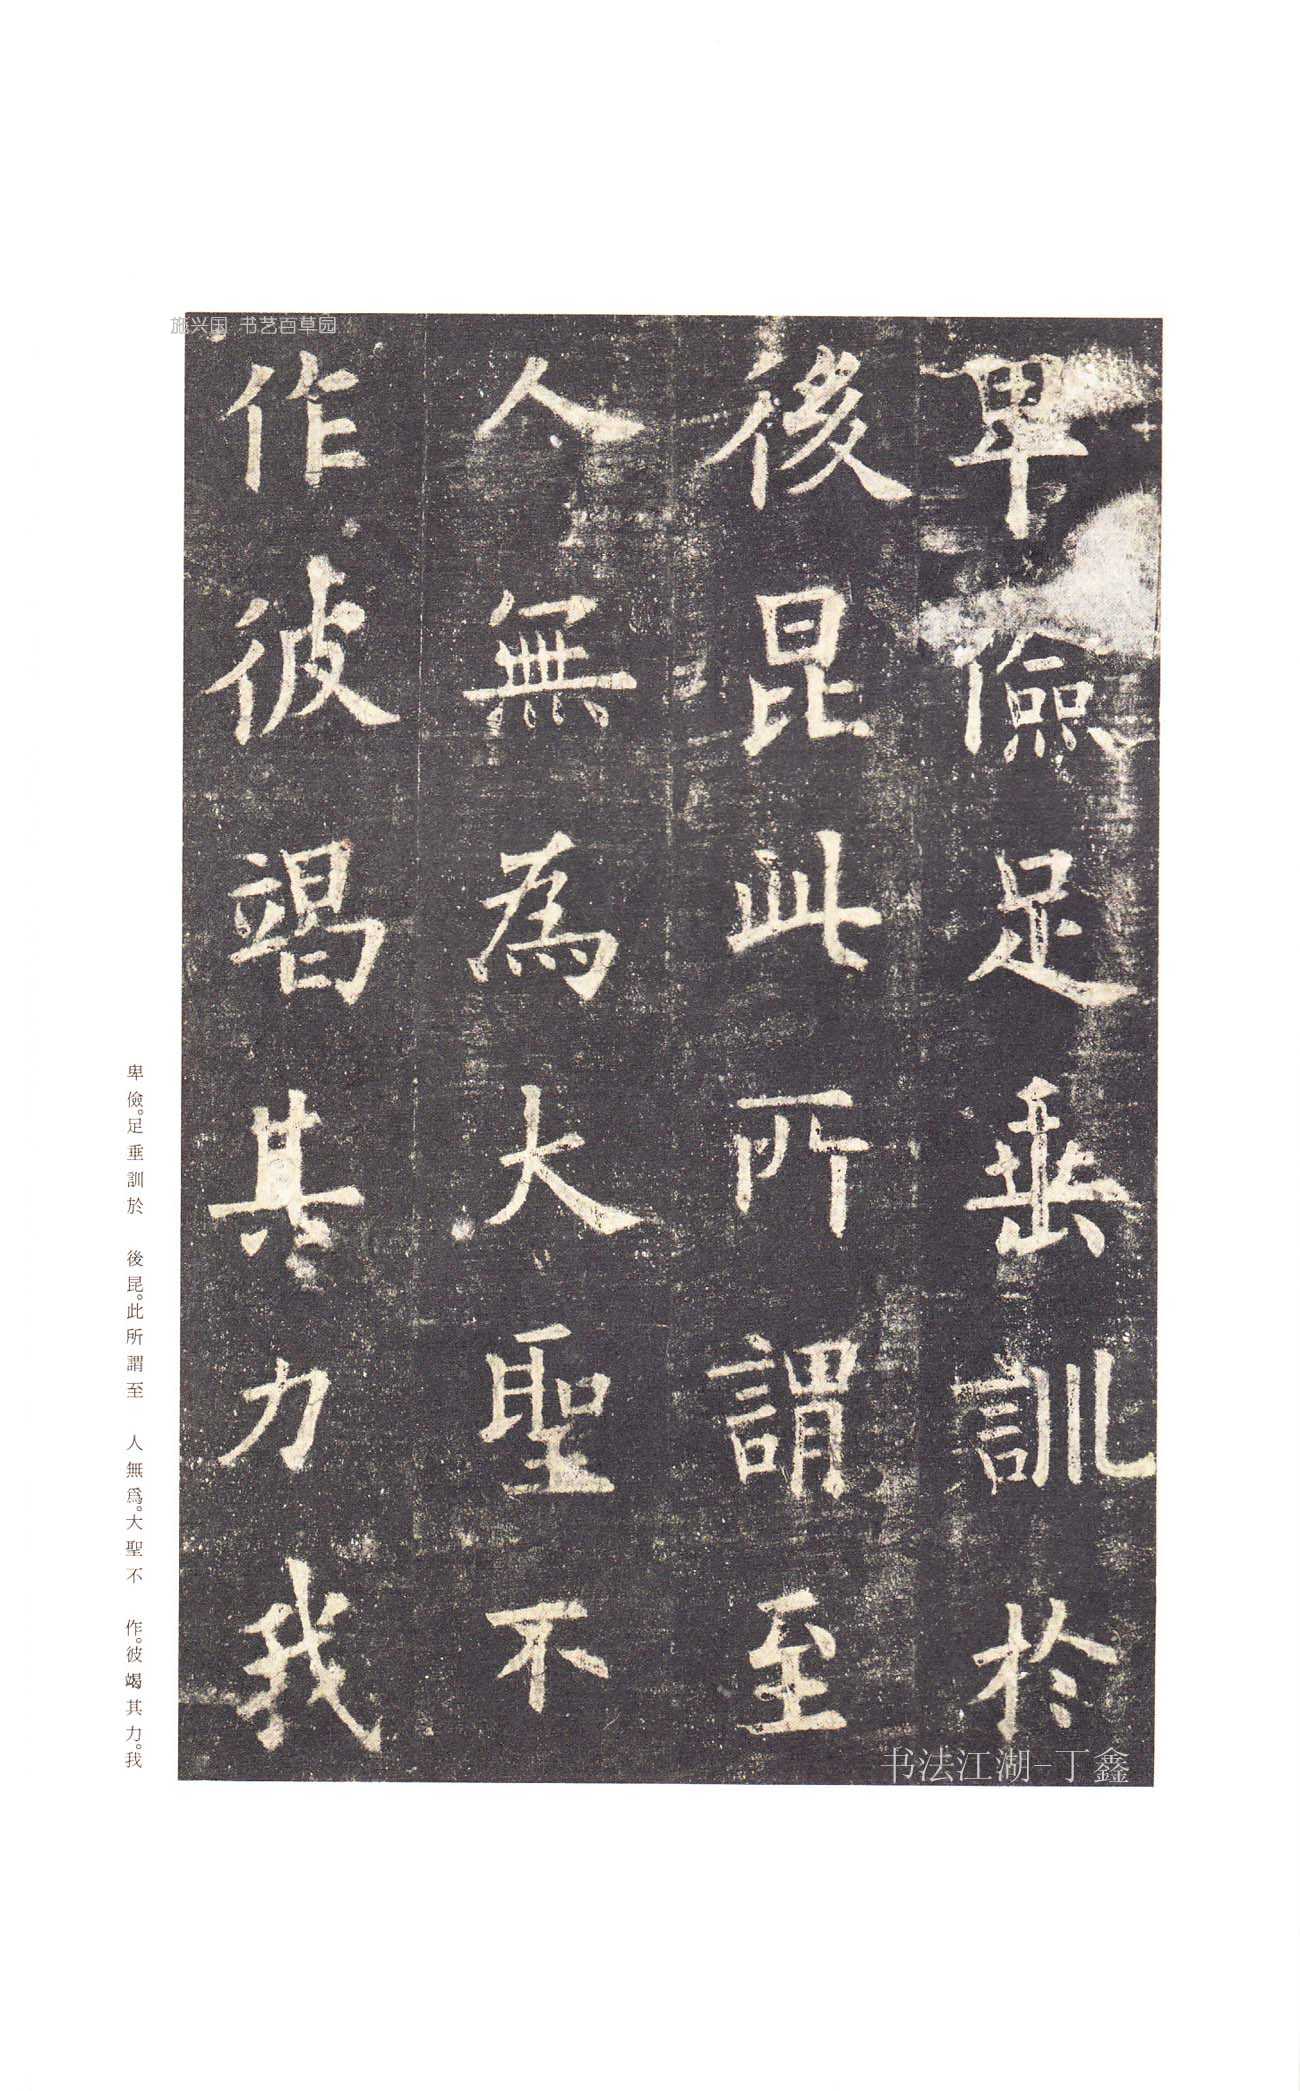 施兴国 书艺百草园
卑儉足垂訓於
後昆此所謂至
人無為大聖不
作彼竭其力我
书法江湖-丁鑫
卑儉。足垂訓於 後昆。此所謂至 人無爲。大聖不 作。彼竭其力。我